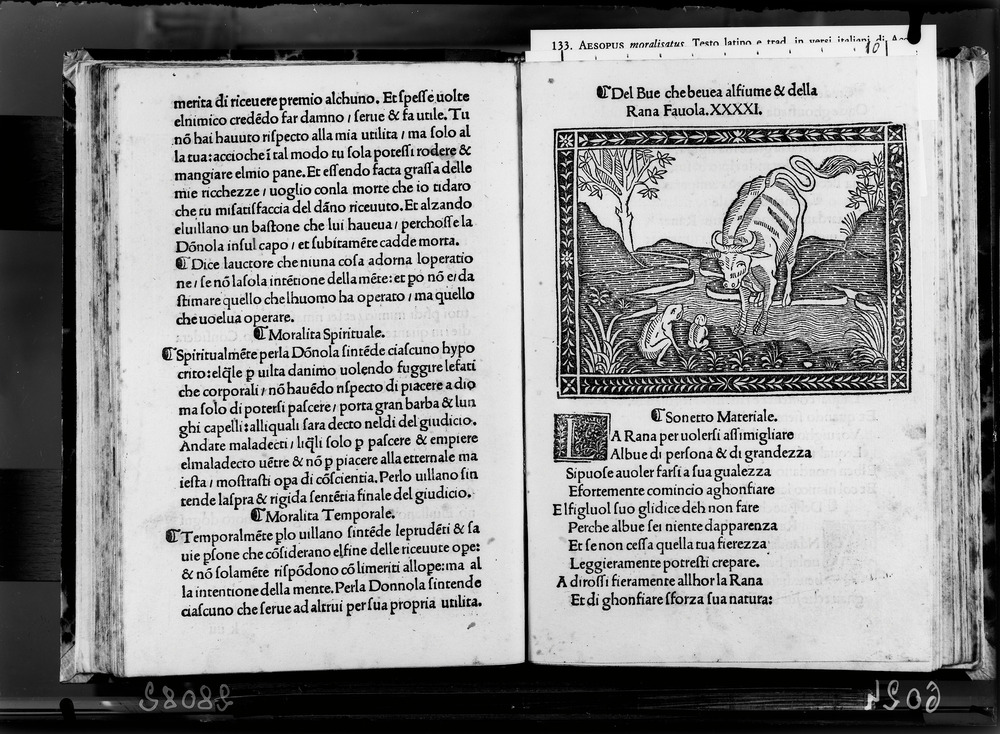 merita di riceuere premio alchuno. Et speſſe uolte
elnimico credēdo far damno / ſerue & fa utile. Tu
nō hai hauuto riſpecto alla mia utilita / ma ſolo al
la tua: accioche ī tal modo tu ſola poteſſi rodere &
mangiare elmio pane. Et eſſendo facta graſſa delle
mie ricchezze / uoglio conla morte che io tidaro
che tu miſatiſfaccia del dāno riceuuto. Et alzando
eluillano un baſtone che lui haueua / perchoſſe la
Dōnola inſul capo / et ſubitamēte cadde morta.
¶ Dice lauctore che niuna coſa adorna loperatio
ne / ſe nō laſola intētione della mēte: et po nō e / da
ſtimare quello che lhuomo ha operato / ma quello
che uoelua operare.
¶ Moralita Spirituale.
¶ Spiritualmēte perla Dōnola ſintēde ciaſcuno hypo
crito: elq̄le ꝑ uilta danimo uolendo fuggire lefati
che corporali / nō hauēdo riſpecto di piacere a dio
ma ſolo di poterſi paſcere / porta gran barba & lun
ghi capelli: alliquali ſara decto neldi del giudicio.
Andate maladecti / liq̄li ſolo ꝑ paſcere & empiere
elmaladecto uētre & nō ꝑ piacere alla etternale ma
ieſta / moſtraſti opa di cōſcientia. Perlo uillano ſin
tende laſpra & rigida ſentētia finale del giudicio.
¶ Moralita Temporale.
¶ Temporalmēte plo uillano ſintēde leprudēti & ſa
uie ꝑſone che cōſiderano elfine delle riceuute ope:
& nō ſolamēte riſpōdono cō limeriti allope: ma al
la intentione della mente. Perla Donnola ſintende
ciaſcuno che ſerue ad altrui per ſua propria utilita.
133. AESOPUS moralisatus. Testo latino e trad. in versi italiani di
10
¶ Del Bue che beuea alfiume & della
Rana Fauola. XXXXI.
¶ Sonetto Materiale.
LA Rana per uolerſi aſſimigliare
Albue di perſona & di grandezza
Sipuoſe auoler farſi a ſua gualezza
Efortemente comincio aghonfiare
Elfigluol ſuo glidice deh non fare
Perche albue ſei niente dapparenza
Et ſe non ceſſa quella tua fierezza
Leggieramente potreſti crepare.
Adiroſſi fieramente allhor la Rana
Et di ghonfiare ſforza ſua natura:
28082
6024